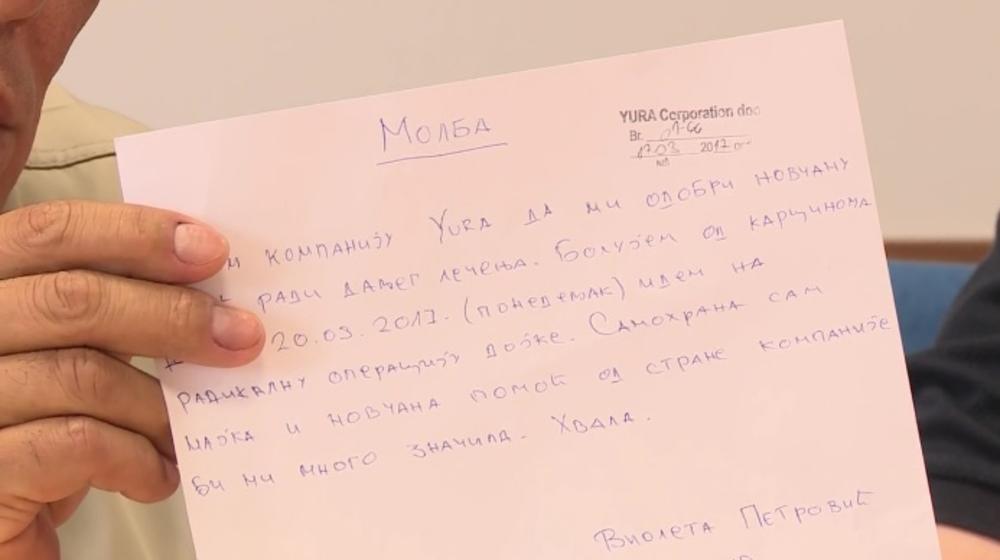 Молба
YURA Corporation doo
Br. 01-66
17.03 2017
Niš
компанију Yura да ми одобри новчану
ради даљег лечења. Болујем од карцинома
20.03.2017. (понедељак) идем на
радикалну операцију дојке. Самохрана сам
мајка и новчана помоћ од стране компаније
би ми много значила. Хвала.
Виолета Петровић